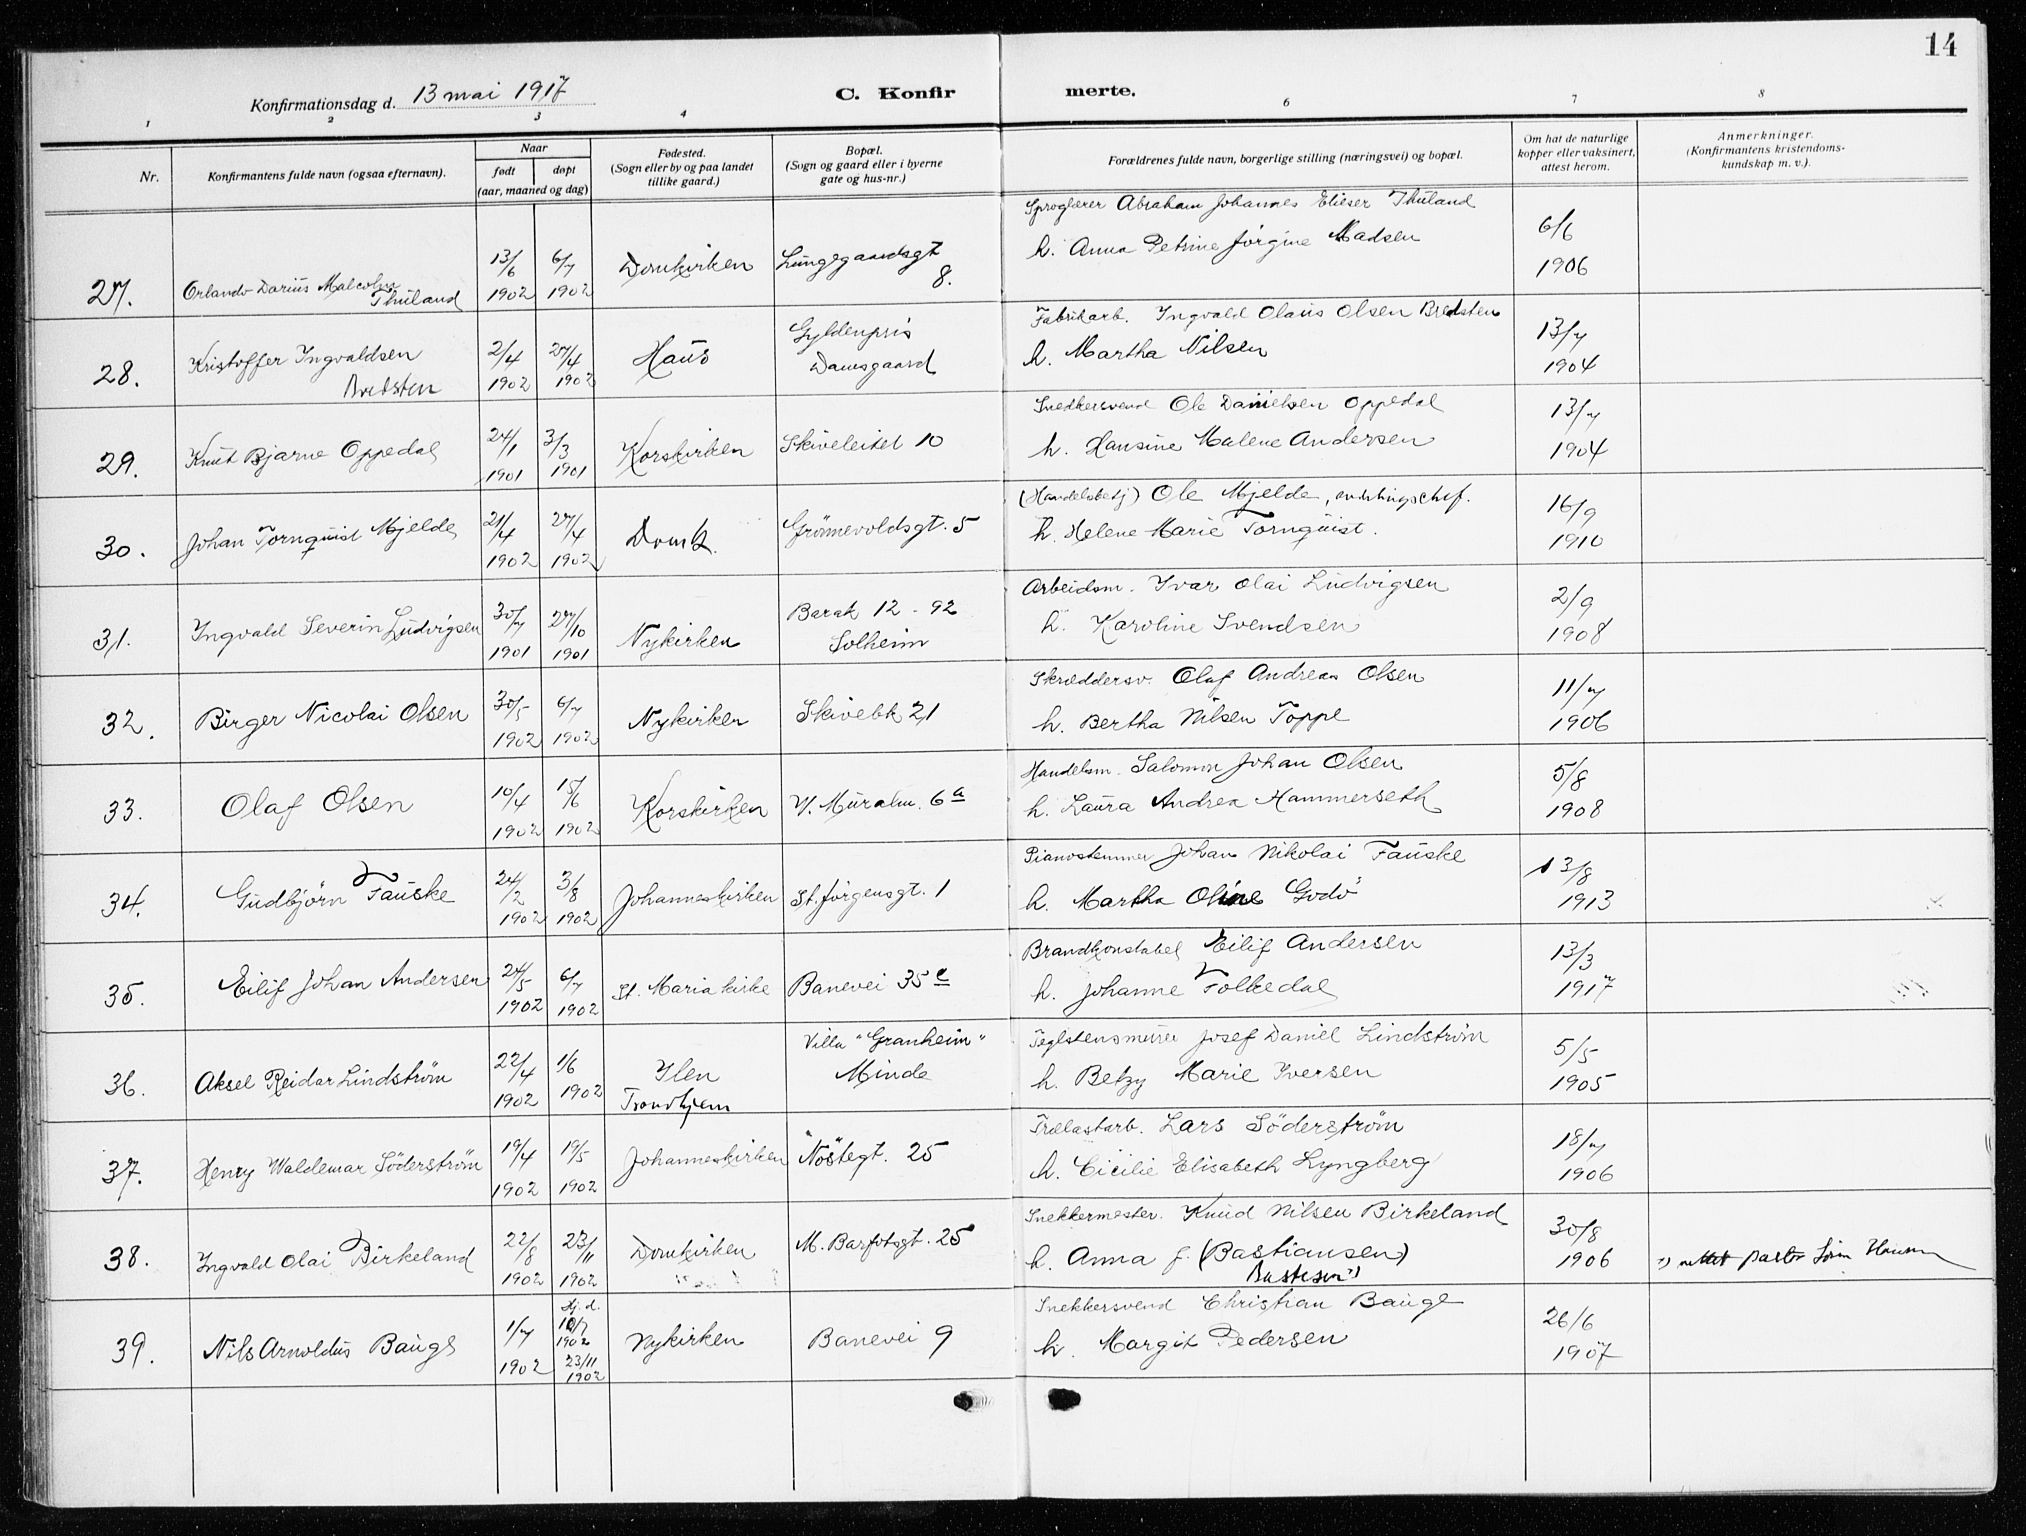 14
Konfirmationsdag d. 13 mai 1917
C. Konfirmerte.
1 2 3 4 6 7 8
Nr.
Konfirmantens fulde navn (ogsaa efternavn).
Naar
født døpt
(aar, maaned og dag)
Fødested.
(Sogn eller by og paa landet
tillike gaard.)
Bopæl.
(Sogn og gaard eller i byerne
gate og hus-nr.)
Forældrenes fulde navn, borgerlige stilling (næringsvei) og bopæl.
Om hat de naturlige
kopper eller vaksinert,
attest herom.
Anmerkninger.
(Konfirmantens kristendoms-
kundskap m. v.).
27. Orlando Darius Malcolm
Thuland
13/6 1902
6/7 1902
Domkirken
Lungegaardsgt
8.
Sproglærer Abraham Johannes Elieser Thuland
h. Anna Petrine Jørgine Madsen
6/6
1906
28. Kristoffer Ingvaldsen
Bredsten
2/4 1902
27/4 1902
Haus
Gyldenpris
Damsgaard
Fabrikarb. Ingvald Olaus Olsen Bredsten
h. Martha Nilsen
13/7
1904
29. Knut Bjarne Oppedal
24/1 1901
3/3 1901
Korskirken
Skiveleitet 10
Snedkersvend Ole Danielsen Oppedal
h. Hansine Malene Andersen
13/7
1904
30. Johan Tornquist Mjelde
21/4 1902
27/4 1902
Domk.
Grönnevoldsgt. 5
(Handelsbetj) Ole Mjelde,
h. Helene Marie Tornquist.
16/9
1910
31. Ingvald Severin Ludvigsen
30/7 1901
27/10 1901
Nykirken
Barak 12 - 92
Solheim
Arbeidsm. Ivar Olai Ludvigsen
h. Karoline Svendsen
2/9
1908
32. Birger Nicolai Olsen
30/5 1902
6/7 1902
Nykirken
Skivebk 21
Skræddersv. Olaf Andreas Olsen
h. Bertha Nilsen Toppe
11/7
1906
33. Olaf Olsen
10/4 1902
15/6 1902
Korskirken
V. Muralm. 6a
Handelsm. Salomon Johan Olsen
h. Laura Andrea Hammerseth
5/8
1908
34. Gudbjörn Fauske
24/2 1902
3/8 1902
Johanneskirken
St. Jörgensgt. 1
Pianostemmer Johan Nikolai Fauske
h. Martha Oline Godö
13/8
1913
35. Eilif Johan Andersen
24/5 1902
6/7 1902
St. Maria kirke
Banevei 35 c
Brandkonstabel Eilif Andersen
h. Johanne Folkedal
13/3
1917
36. Aksel Reidar Lindström
22/4 1902
1/6 1902
Ilen
Trondhjem
Villa "Granheim"
Minde
Teglstensmurer Josef Daniel Lindström
h. Betzy Marie Iversen
5/5
1905
37. Henry Waldemar Söderström
19/4 1902
19/5 1902
Johanneskirken
Nöstegt. 25
Trælastarb. Lars Söderström
h. Cicilie Elisabeth Lyngberg
18/7
1906
38. Ingvald Olai Birkeland
22/8 1902
23/11 1902
Domkirken
M. Barfotsgt. 25
Snekkermester. Knud Nilsen Birkeland
h. Anna f. (Bastiansen)
Bastesen ¹)
30/8
1906
¹) rettet pastor Hansen
39. Nils Arnoldus Bauge
1/7 1902
Hj. d.
10/7 1902
23/11 1902
Nykirken
Banevei 9
Snekkersvend Christian Bauge
h. Margit Pedersen
26/6
1907